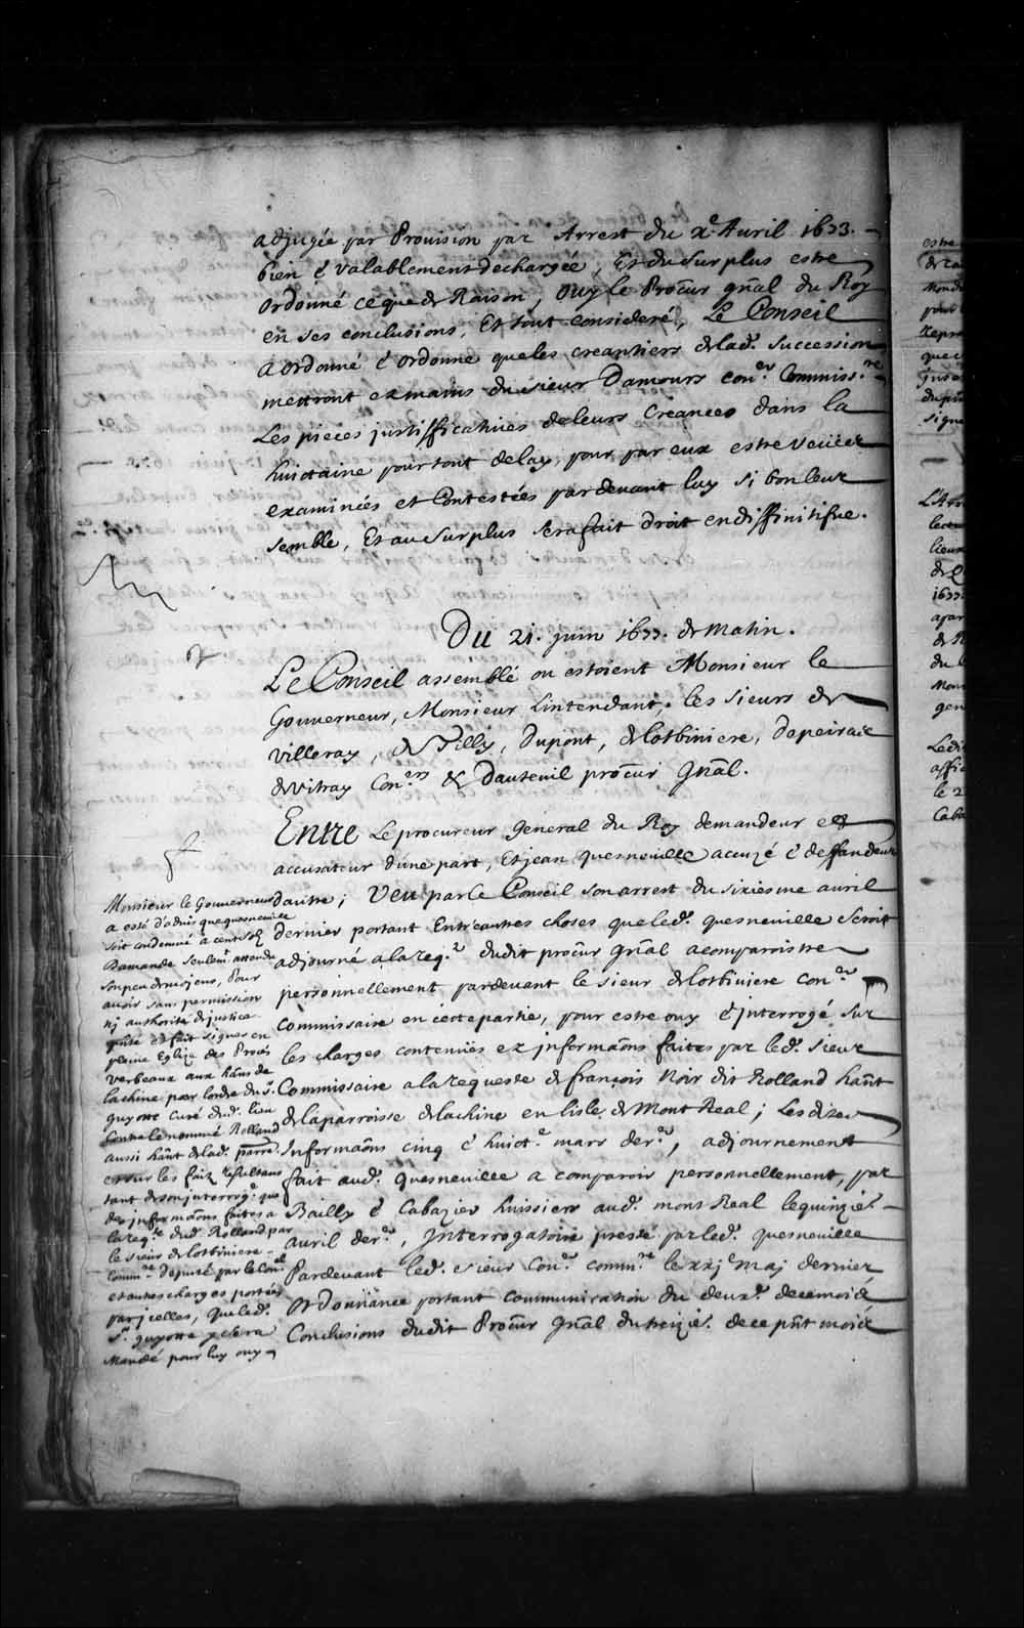 adjugée par Provision par Arrest du xe. Avril 1677.
bien & valablement dechargée, Et du surplus estre
ordonné ce que de Raison, Ouy le Procur gñal du Roy
en ses conclusions, Et tout consideré, Le Conseil
a ordonné & ordonne que les creantiers de lad. succession
mettront ez mains du sieur Damours coner. Commissre.
Les pieces justifficatives de leurs Creances dans la
huictaine pour tout delay, pour par eux estre veuües
examinées et Contestées pardevant luy si bon leur
semble, Et au surplus sera fait droit en diffinitifue.
Du 21. juin 1677. de matin.
Le Conseil assemblé ou estoient Monsieur le
Gouuerneur, Monsieur Lintendant, les sieurs de
Villeray, de Tilly, Dupont, de lotbiniere, depeiras
de Vitray Coners & Dauteuil procur Gñal.
Entre Le procureur general du Roy demandeur et
accusateur d'une part, Et jean quesneuille accuzé & deffandeur
dautre; Veu par le Conseil son arrest du sixiesme auril
dernier portant Entr'autres choses que led. quesneuille seroit
adjourné a la reqte. dudit procur gñal a comparroistre
personnellement pardevant le sieur de lotbiniere coner.
Commissaire en cette partie, pour estre ouy & jnterrogé sur
les charges contenuës ez jnformaõns faites par led. sieur
Commissaire a la requeste de françois Noir dit Rolland hañt
de la parroisse de lachine en lisle de Mont Real; Lesdites
Informaõns cinq & huict.e mars der.er, adjournement
fait aud. quesneuille a comparoir personnellement, par
Bailly & Cabazier huissiers aud. mont Real le quinzie.
auril der.er, Jnterrogatoire presté par led. quesneuille
Pardevant led. sieur Coner. commre. le xxje may dernier
Ordonnance portant communication du deux.e de ce mois
Conclusions dudit Procur Gñal du treizie. de ce pñt mois
Monsieur le Gouuerneur
a esté d'aduis que quesneuille
soit condemné a cent solz
Damande seulemt. attendu
son peu de moyens, Pour
auoir sans permission
nj authorité de justice
et fait signer en
pleine Eglize des Procés
verbeaux aux hãns de
lachine par lordre du Sr.
guyotte Curé dud. lieu
contre le nommé Rolland
aussi hañt de lad. parre.
et sur les faitz resultans
tant de son jnterrog.e que
des jnformaõns faites a
la reqte. dud. Rolland par
le sieur de lotbiniere
commre. deputé par le Conel.
et autres charges portées
par jcelles, que led.
Sr. guyotte sera
Mandé pour luy ouy